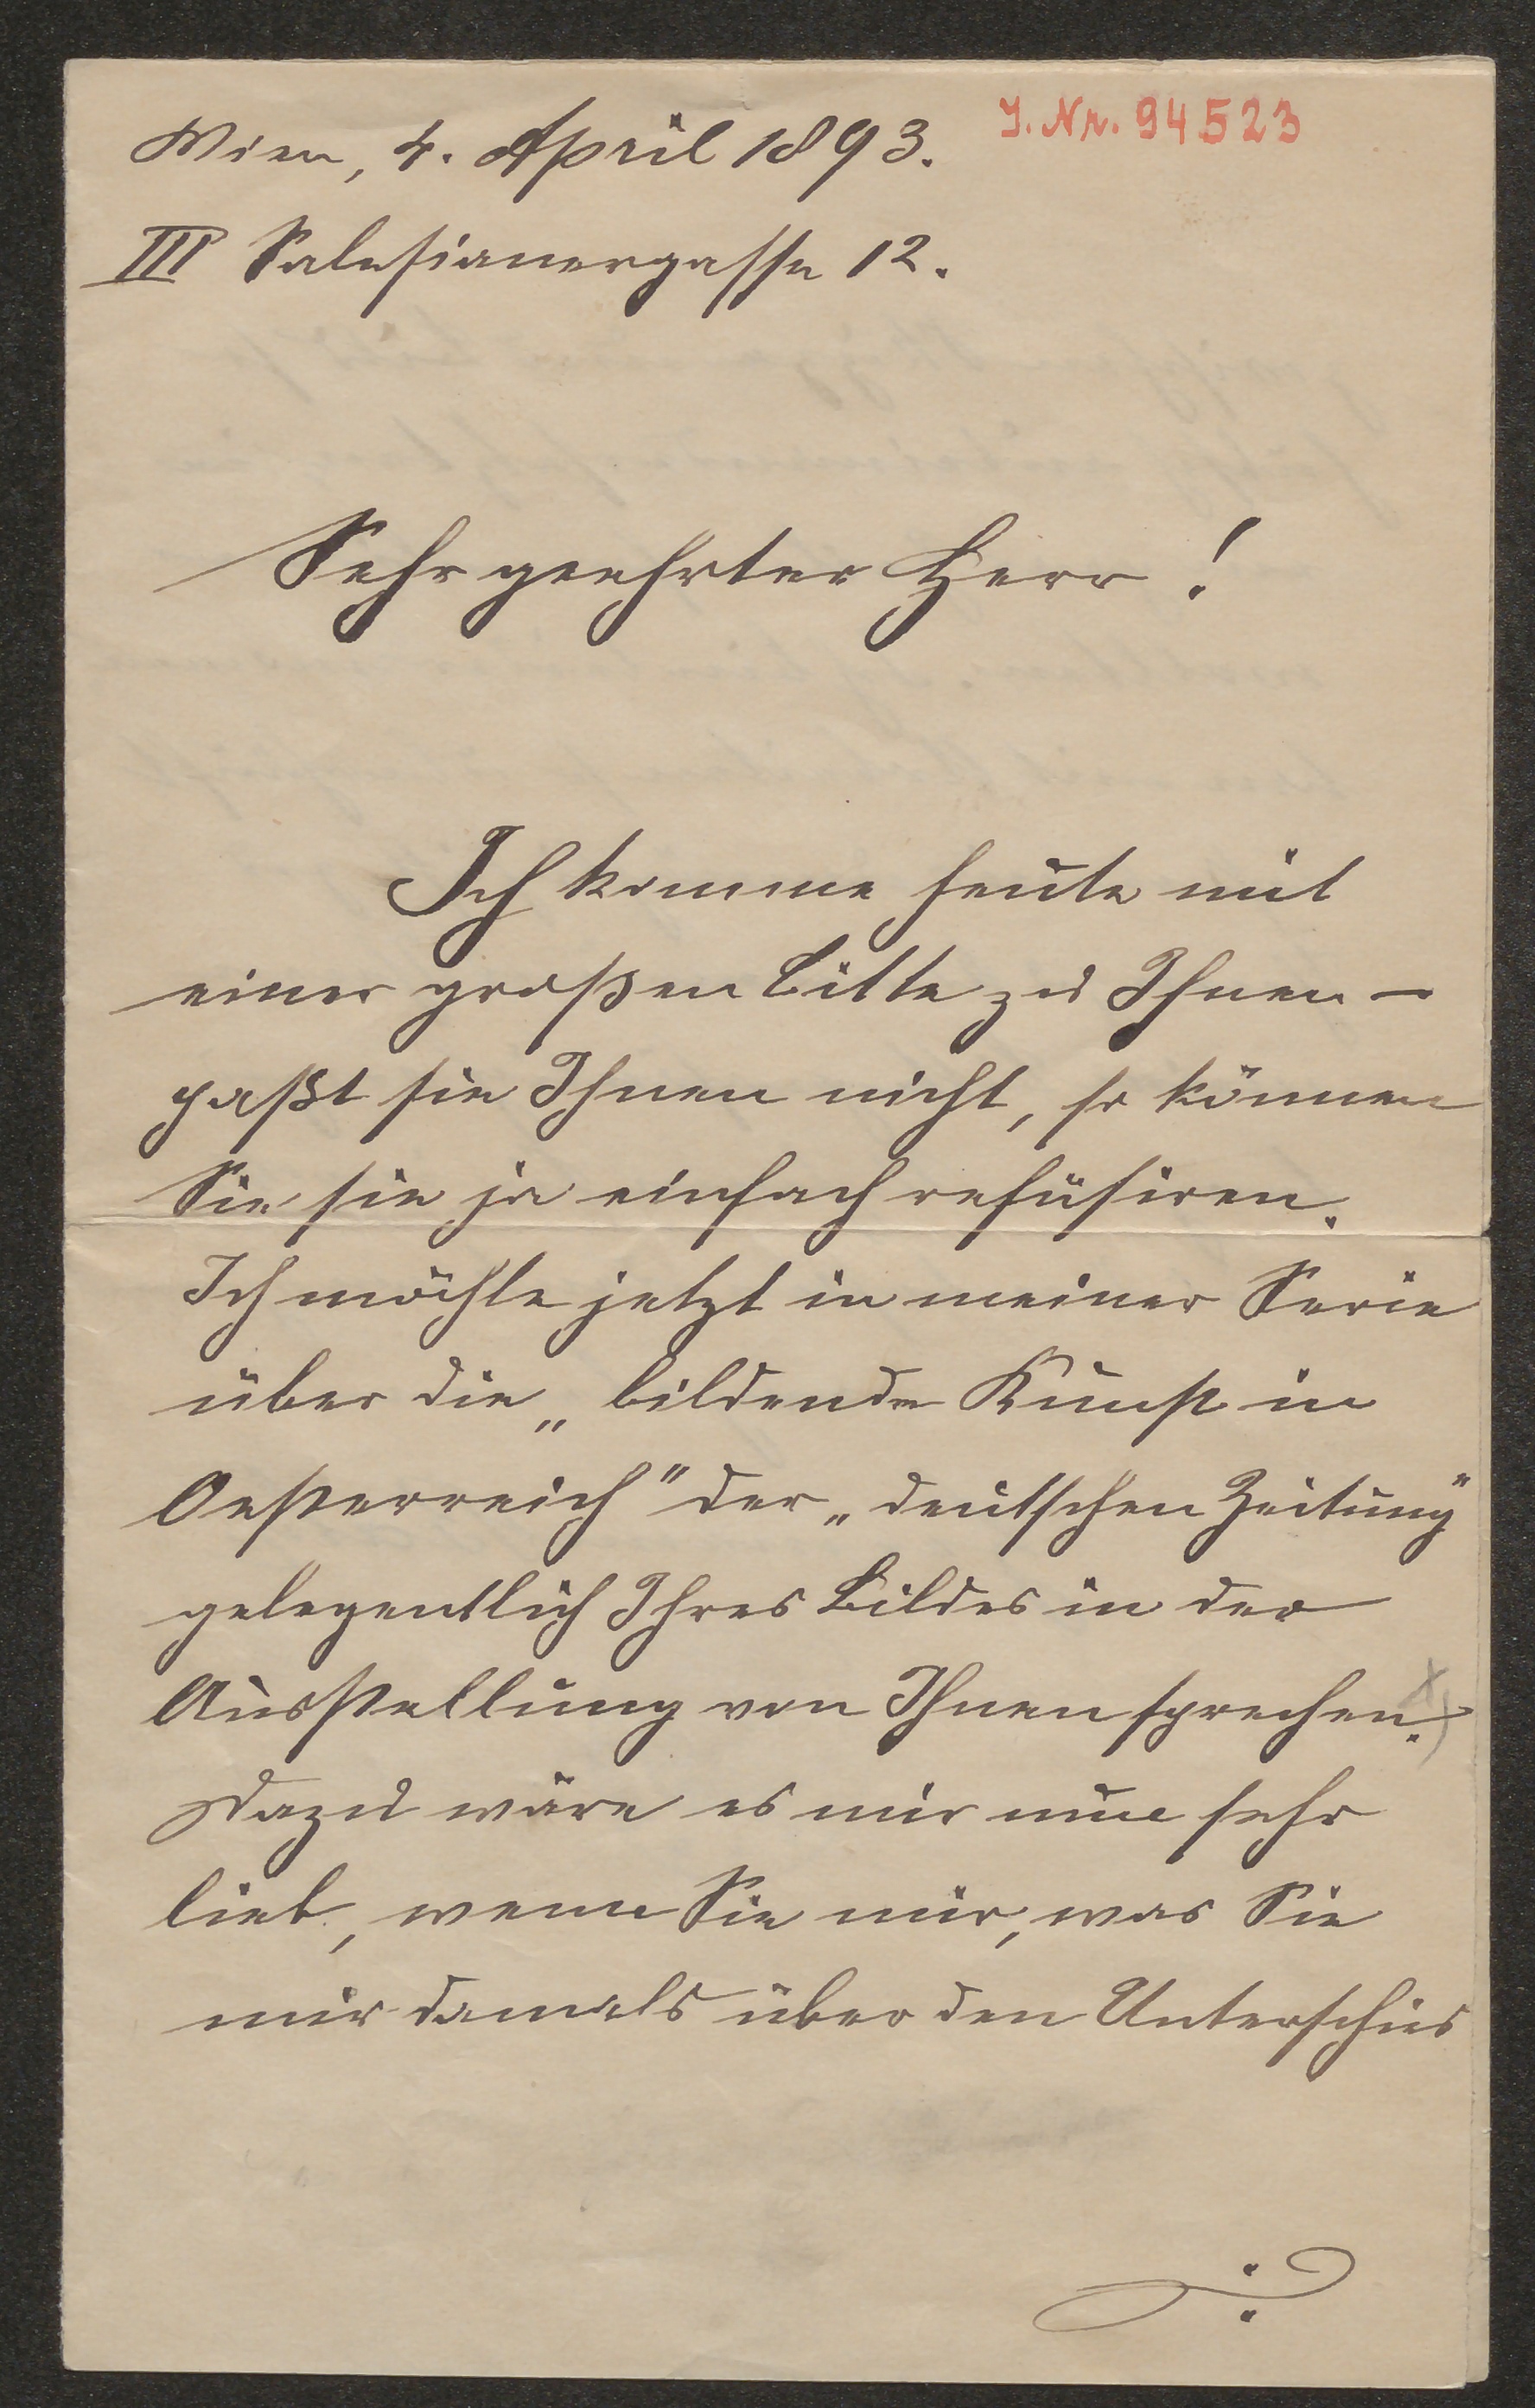 J. Nr. 94523
Wien, 4. April 1893.
III Salesianergasse 12.
Sehr geehrter Herr!
Ich komme heute mit
einer großen Bitte zu Ihnen –
paßt sie Ihnen nicht, so können
Sie sie ja einfach refüsiren.
Ich möchte jetzt in meiner Serie
über die „bildende Kunst in
Oesterreich" der „deutschen Zeitung"
gelegentlich Ihres Bildes in der
Ausstellung von Ihnen sprechen. x)
Dazu wäre es mir nun sehr
lieb, wenn Sie mir, was Sie
mir damals über den Unterschied